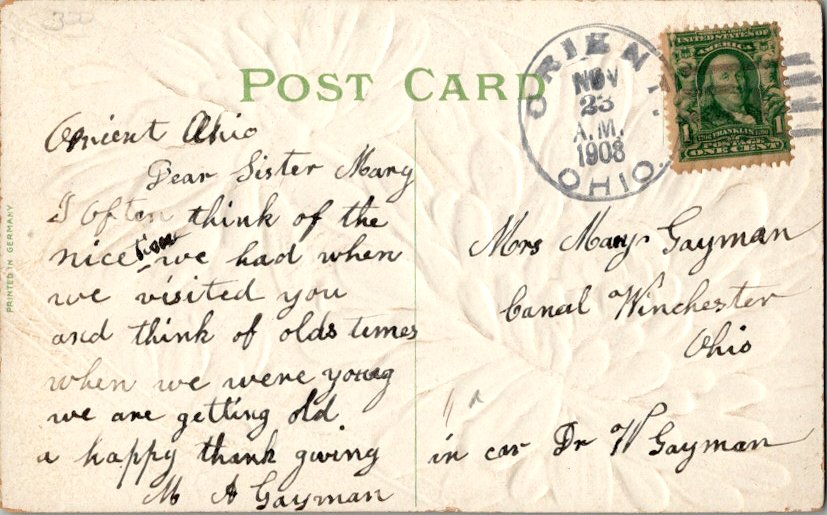 POST CARD
ORIENT.
NOV
23
A.M.
1908
OHIO.
UNITED STATES OF
AMERICA
1 FRANKLIN 1
POSTAGE
ONE CENT
PRINTED IN GERMANY
Orient Ohio
Dear Sister Mary
I often think of the
nice time we had when
we visited you
and think of olds times
when we were young
we are getting old
a happy thank giving
M A Gayman
Mrs Mary Gayman
Canal Winchester
Ohio
in car Dr W Gayman